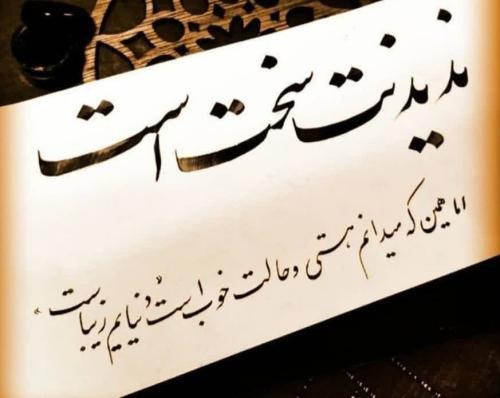 ندیدنت سخت است
اما همین که میدانم هستی و حالت خوب است "دنیایم زیباست"